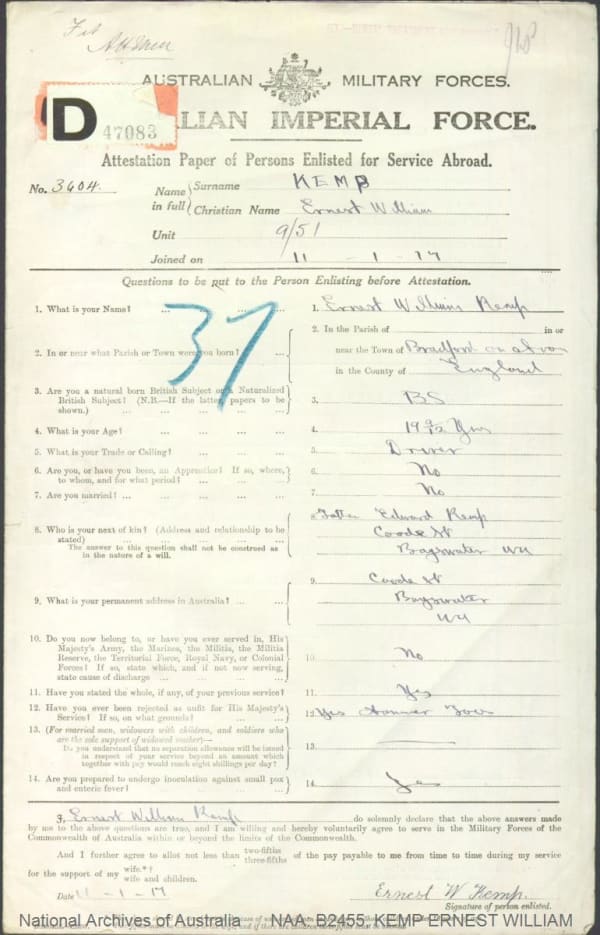 Fit
AUSTRALIAN MILITARY FORCES.
D 47083
LIAN IMPERIAL FORCE.
Attestation Paper of Persons Enlisted for Service Abroad.
No. 3604.
Name in full { Surname KEMP
Christian Name Ernest William
Unit 9/51
Joined on 11-1-17
Questions to be put to the Person Enlisting before Attestation.
37
1. What is your Name? ... ... ... 1. Ernest William Kemp
2. In or near what Parish or Town were you born? ... 2. In the Parish of in or
near the Town of Bradford on Avon
in the County of England
3. Are you a natural born British Subject or a Naturalized
British Subject? (N.B.—If the latter, papers to be
shown.) ... ... ... ... 3. BS
4. What is your Age? ... ... ... ... 4. 19 9/12 Yrs
5. What is your Trade or Calling? ... ... ... 5. Driver
6. Are you, or have you been, an Apprentice? If so, where,
to whom, and for what period? ... ... ... 6. No
7. Are you married? ... ... ... ... 7. No
8. Who is your next of kin? (Address and relationship to be
stated) ... ... ... ...
The answer to this question shall not be construed as
in the nature of a will.
8. Father Edward Kemp
Coode St
Bayswater WA
9. What is your permanent address in Australia? ... ...
9. Coode St
Bayswater
WA
10. Do you now belong to, or have you ever served in, His
Majesty's Army, the Marines, the Militia, the Militia
Reserve, the Territorial Force, Royal Navy, or Colonial
Forces? If so, state which, and if not now serving,
state cause of discharge ... ... ... 10. No
11. Have you stated the whole, if any, of your previous service? 11. Yes
12. Have you ever been rejected as unfit for His Majesty's
Service? If so, on what grounds? ... ... 12 Yes Hammer Toes
13. (For married men, widowers with children, and soldiers who
are the sole support of widowed mother)—
Do you understand that no separation allowance will be issued
in respect of your service beyond an amount which
together with pay would reach eight shillings per day? 13.
14. Are you prepared to undergo inoculation against small pox
and enteric fever? ... ... ... 14. Yes
I, Ernest William Kemp do solemnly declare that the above answers made
by me to the above questions are true, and I am willing and hereby voluntarily agree to serve in the Military Forces of the
Commonwealth of Australia within or beyond the limits of the Commonwealth.
And I further agree to allot not less than two-fifths three-fifths of the pay payable to me from time to time during my service
for the support of my wife.*† wife and children.
Date 11-1-17
Ernest W Kemp.
Signature of person enlisted.
National Archives of Australia NAA: B2455, KEMP ERNEST WILLIAM